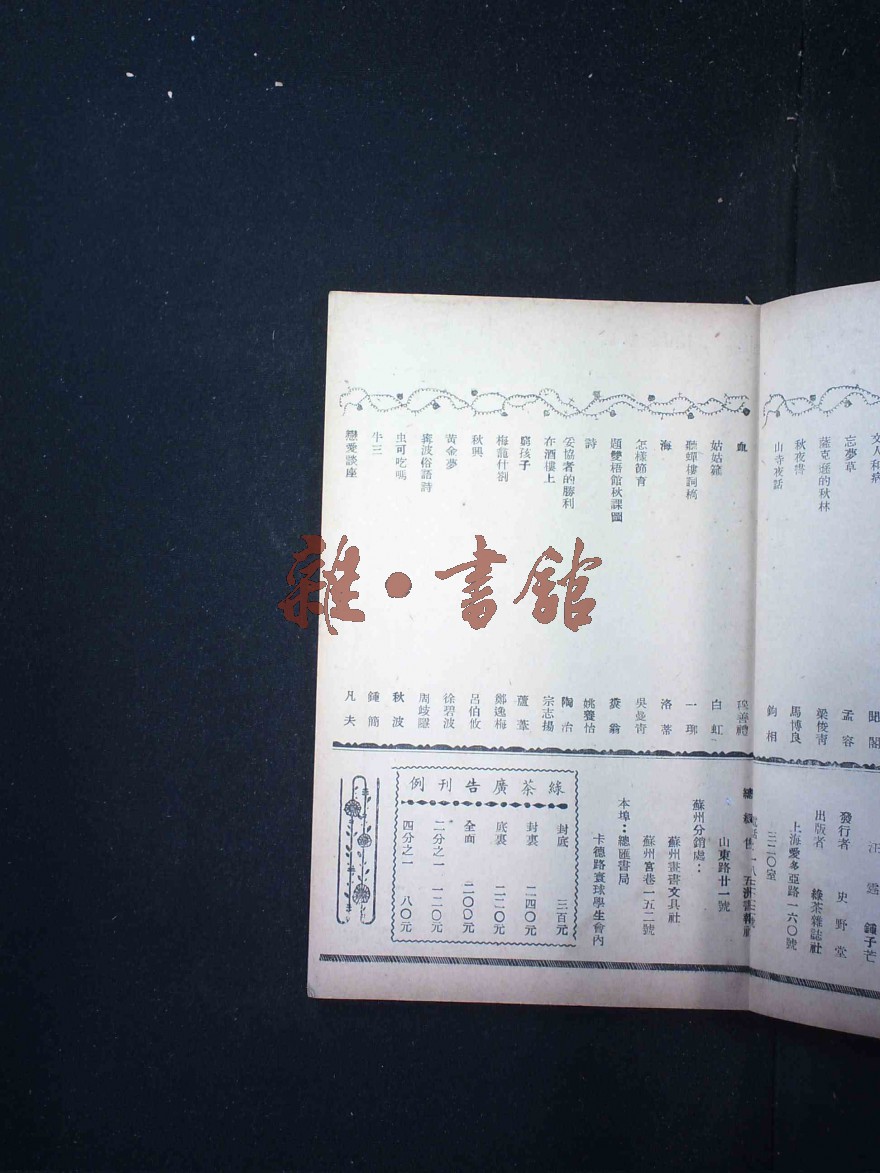 文人和病
聞閣
忘夢草
孟容
薩克遜的秋林
梁俊青
秋夜書
馬博良
山寺夜話
鈎相
血
善禮
姑姑籠
白虹
聽蟬樓詞稿
一琊
海
洛蒂
怎樣節育
吳曼青
題雙梧館秋課圖
翁
詩
姚
妥協者的勝利
陶治
在酒樓上
宗志揚
窮孩子
蘆葦
梅龍什劄
鄭逸梅
秋興
呂伯攸
黃金夢
徐碧波
寗波俗語詩
周
虫可吃嗎
秋波
牛三
鍾簡
戀愛談座
凡夫
汪霞 鍾子芒
發行者 史野堂
出版者 綠茶雜誌社
上海愛多亞路一六〇號
三二〇室
山東路廿一號
蘇州分銷處：
蘇州畫書文具社
蘇州宮巷一五二號
本埠：總匯書局
卡德路寰球學生會內
綠茶廣告刊例
封底 三百元
封裏 二四〇元
底裏 二二〇元
全面 二〇〇元
二分之一 一二〇元
四分之一 八〇元
雜·書館